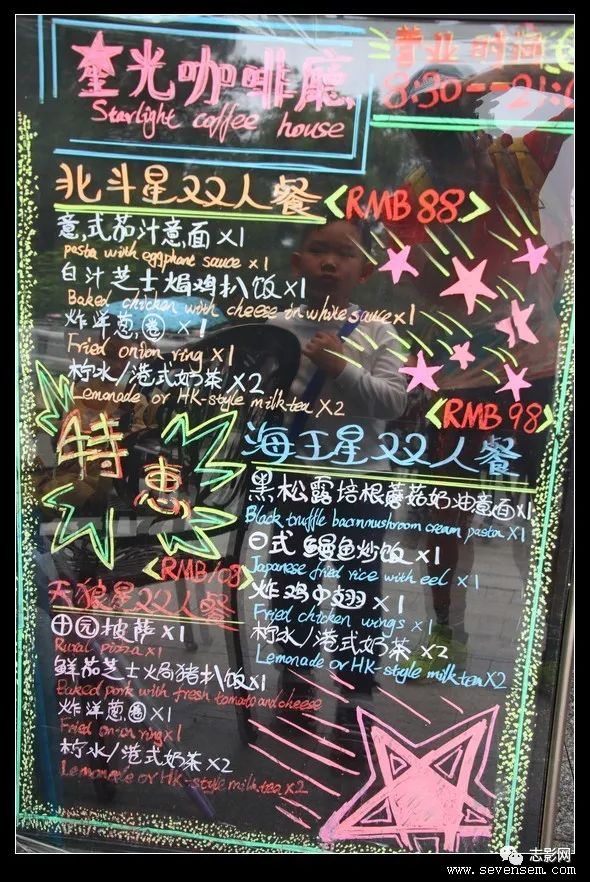 星光咖啡廳
Starlight coffee house
营业时间
8:30--21:0
北斗星双人餐 <RMB 88>
意式茄汁意面 X1
pasta with eggphant sauce x1
白汁芝士焗鸡扒饭 X1
Baked chicken with cheese in white sauce x1
炸洋葱圈 X1
Fried onion ring X1
柠水/港式奶茶 X2
Lemonade or HK-style milk tea X2
特惠
<RMB 98>
海王星双人餐
黑松露培根蘑菇奶油意面X1
Black truffle baconmushroom cream pasta X1
日式鳗鱼炒饭 X1
Japanese fried rice with eel X1
炸鸡中翅 X1
Fried chicken wings X1
柠水/港式奶茶 X2
Lemonade or HK-style milk tea X2
<RMB108>
天狼星双人餐
田园披萨 X1
Rural pizza x1
鲜茄芝士焗猪扒饭X1
Baked pork with fresh tomato and cheese
炸洋葱圈 X1
Fried onion ring x1
柠水/港式奶茶 X2
Lemonade or HK-style milk tea X2
志影网
www.sevensem.com